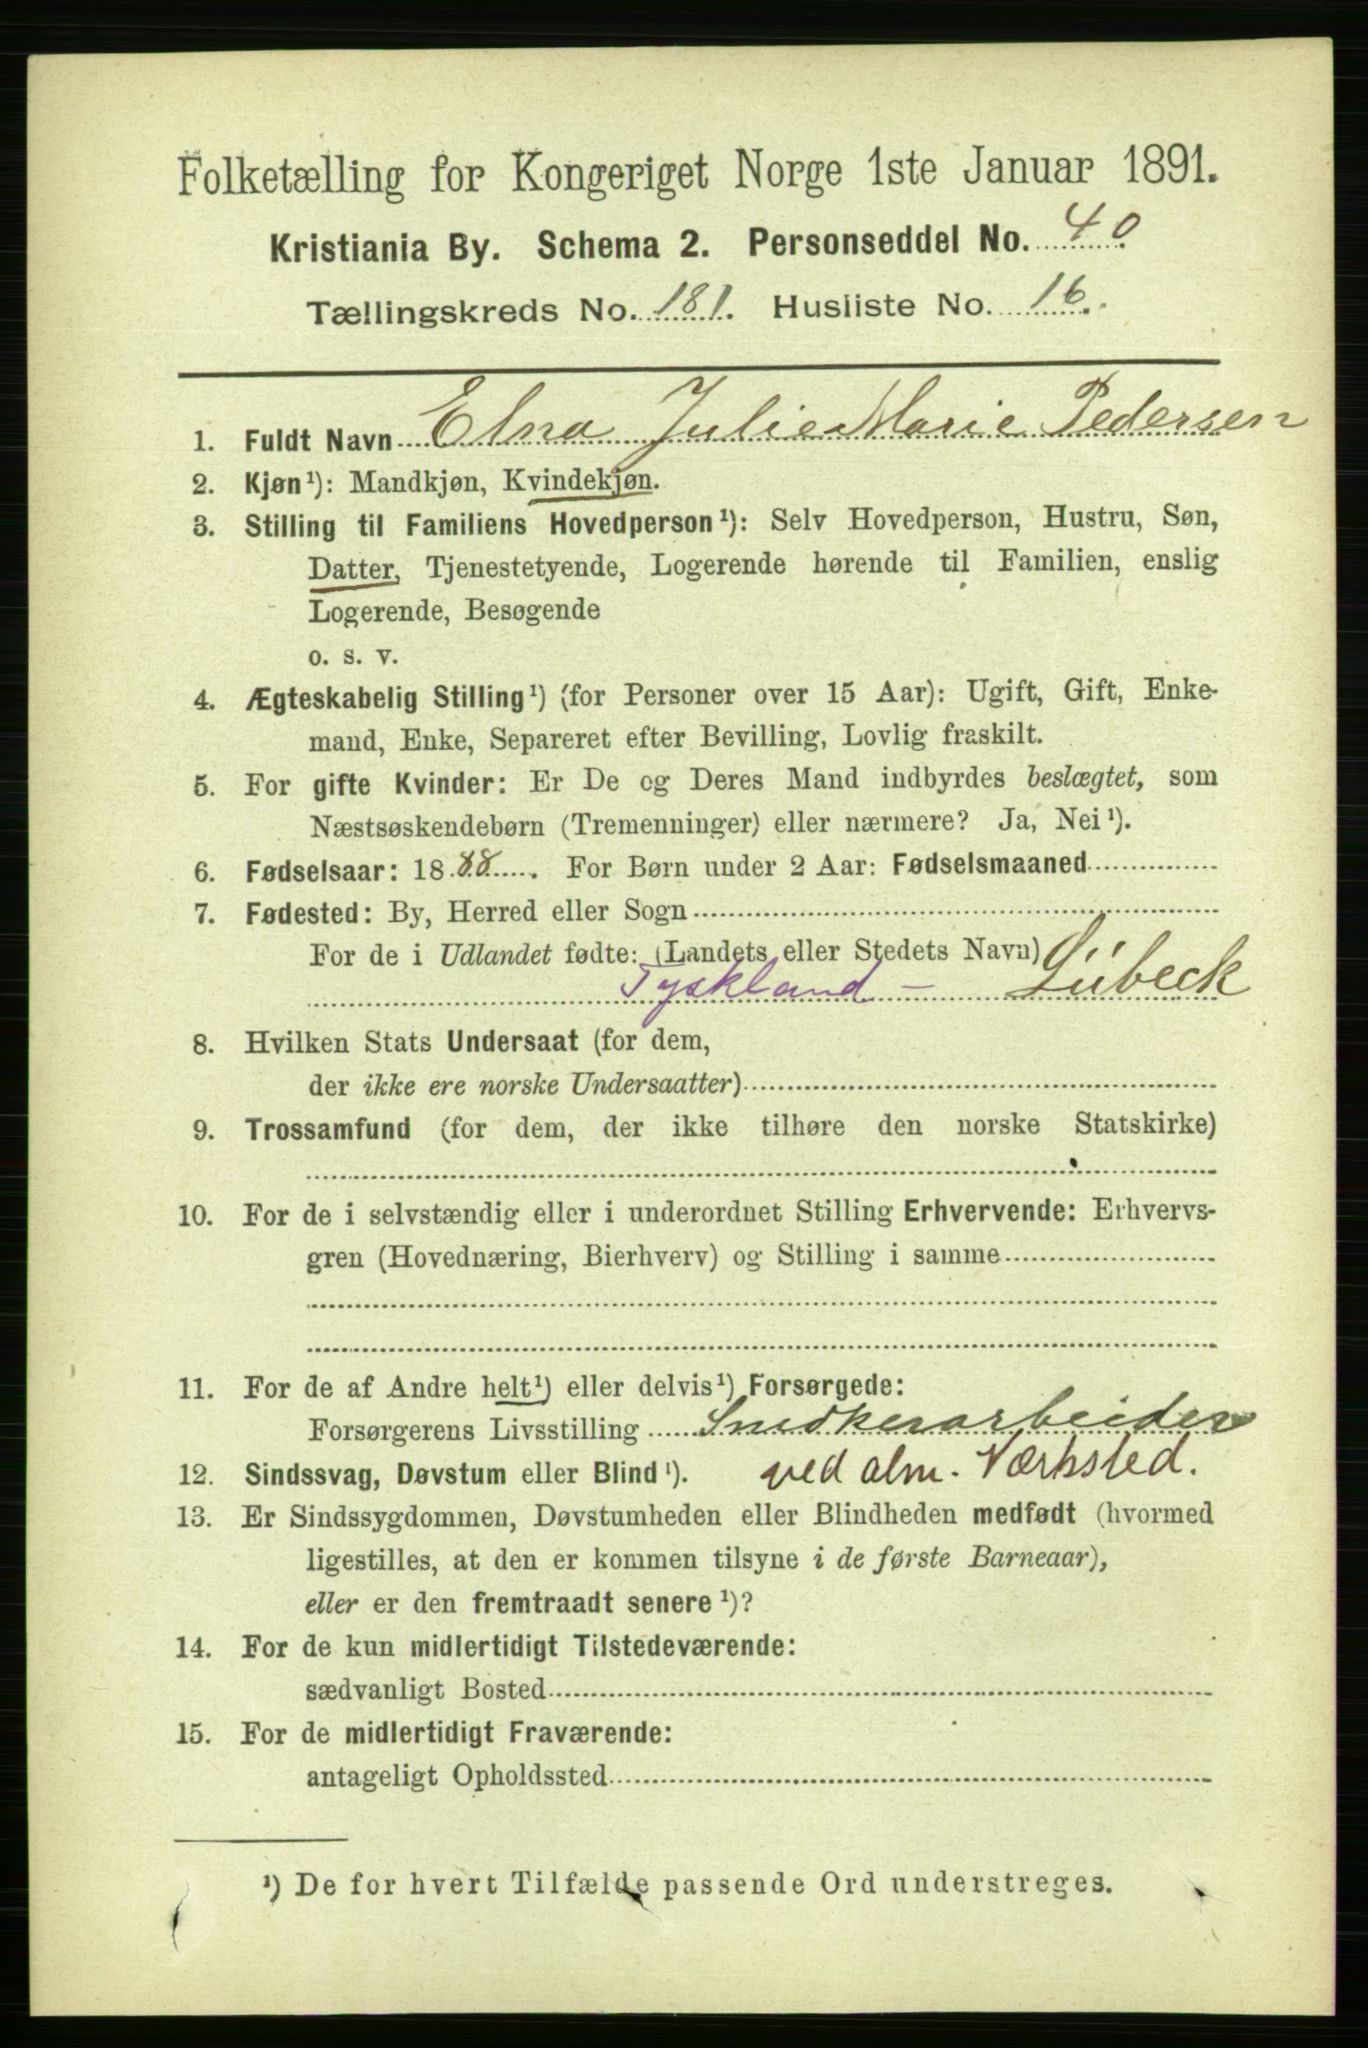 Folketælling for Kongeriget Norge 1ste Januar 1891.
Kristiania By. Schema 2. Personseddel No. 40
Tællingskreds No. 181. Husliste No. 16.
1. Fuldt Navn Elna Julie Marie Pedersen
2. Kjøn¹): Mandkjøn, Kvindekjøn.
3. Stilling til Familiens Hovedperson¹): Selv Hovedperson, Hustru, Søn,
Datter, Tjenestetyende, Logerende hørende til Familien, enslig
Logerende, Besøgende
o. s. v.
4. Ægteskabelig Stilling¹) (for Personer over 15 Aar): Ugift, Gift, Enke-
mand, Enke, Separeret efter Bevilling, Lovlig fraskilt.
5. For gifte Kvinder: Er De og Deres Mand indbyrdes beslægtet, som
Næstsøskendebørn (Tremenninger) eller nærmere? Ja, Nei¹).
6. Fødselsaar: 1888. For Børn under 2 Aar: Fødselsmaaned
7. Fødested: By, Herred eller Sogn
For de i Udlandet fødte: (Landets eller Stedets Navn)
Tyskland – Lübeck
8. Hvilken Stats Undersaat (for dem,
der ikke ere norske Undersaatter)
9. Trossamfund (for dem, der ikke tilhøre den norske Statskirke)
10. For de i selvstændig eller i underordnet Stilling Erhvervende: Erhvervs-
gren (Hovednæring, Bierhverv) og Stilling i samme
11. For de af Andre helt¹) eller delvis¹) Forsørgede:
Forsørgerens Livsstilling Snedkerarbeider
12. Sindssvag, Døvstum eller Blind¹). ved alm. Værksted.
13. Er Sindssygdommen, Døvstumheden eller Blindheden medfødt (hvormed
ligestilles, at den er kommen tilsyne i de første Barneaar),
eller er den fremtraadt senere¹)?
14. For de kun midlertidigt Tilstedeværende:
sædvanligt Bosted
15. For de midlertidigt Fraværende:
antageligt Opholdssted
¹) De for hvert Tilfælde passende Ord understreges.